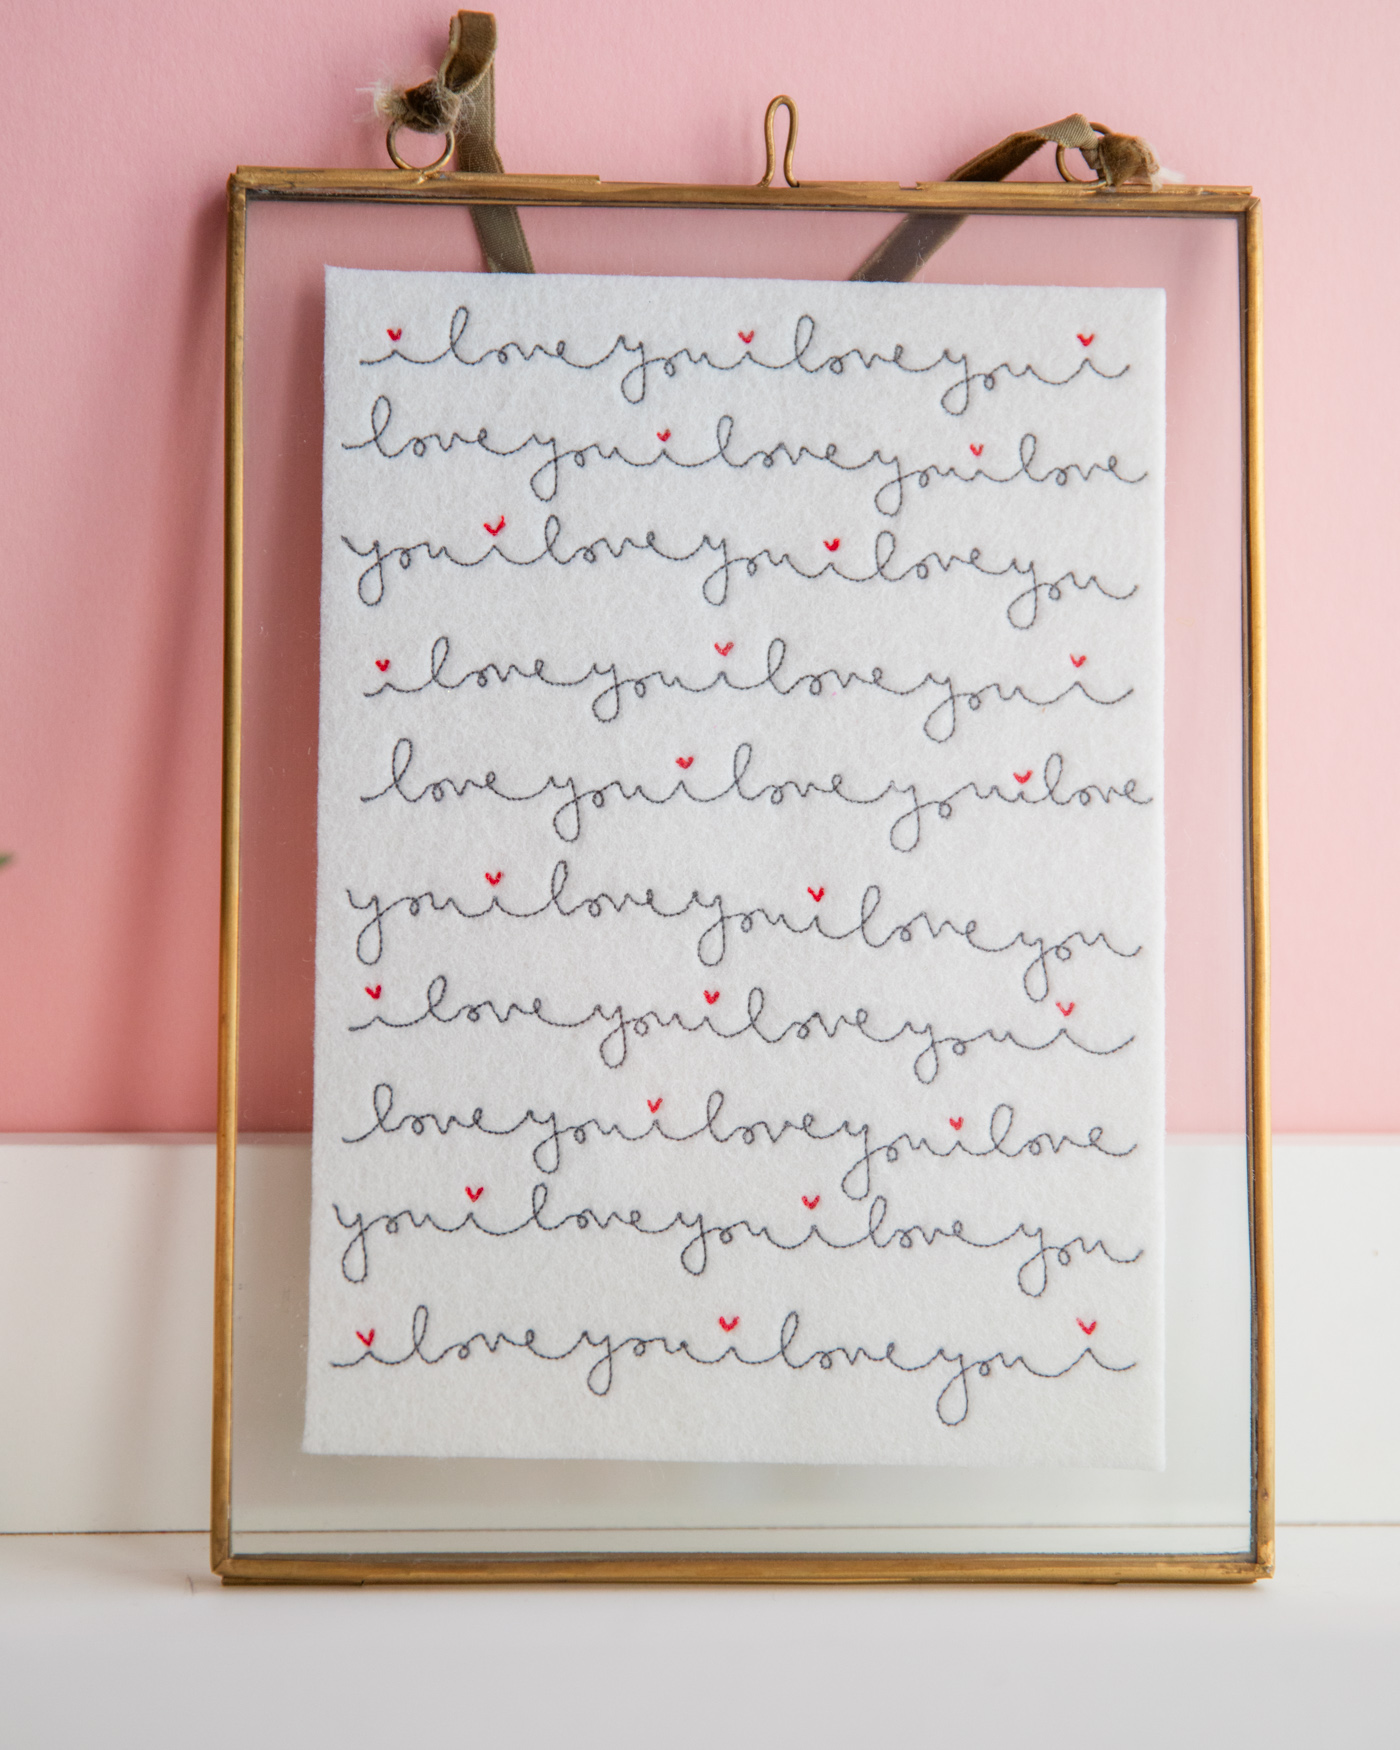 iloveyouiloveyoui
loveyouiloveyouilove
youiloveyouiloveyou
iloveyouiloveyoui
loveyouiloveyouilove
youiloveyouiloveyou
iloveyouiloveyoui
loveyouiloveyouilove
youiloveyouiloveyou
iloveyouiloveyoui